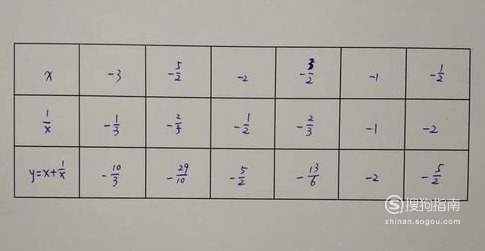 x -3 -5/2 -2 -3/2 -1 -1/2
1/x -1/3 -2/5 -1/2 -2/3 -1 -2
y=x+1/x -10/3 -29/10 -5/2 -13/6 -2 -5/2
搜狗指南
zhinan.sogou.com